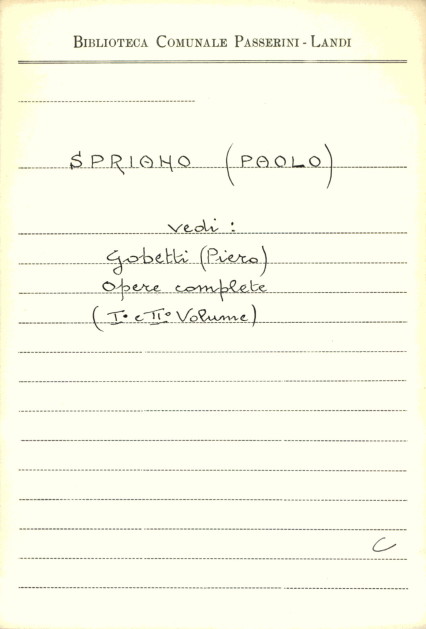 BIBLIOTECA COMUNALE PASSERINI - LANDI
SPRIANO (PAOLO)
vedi :
Gobetti (Piero)
Opere complete
(I° e II° Volume)
C